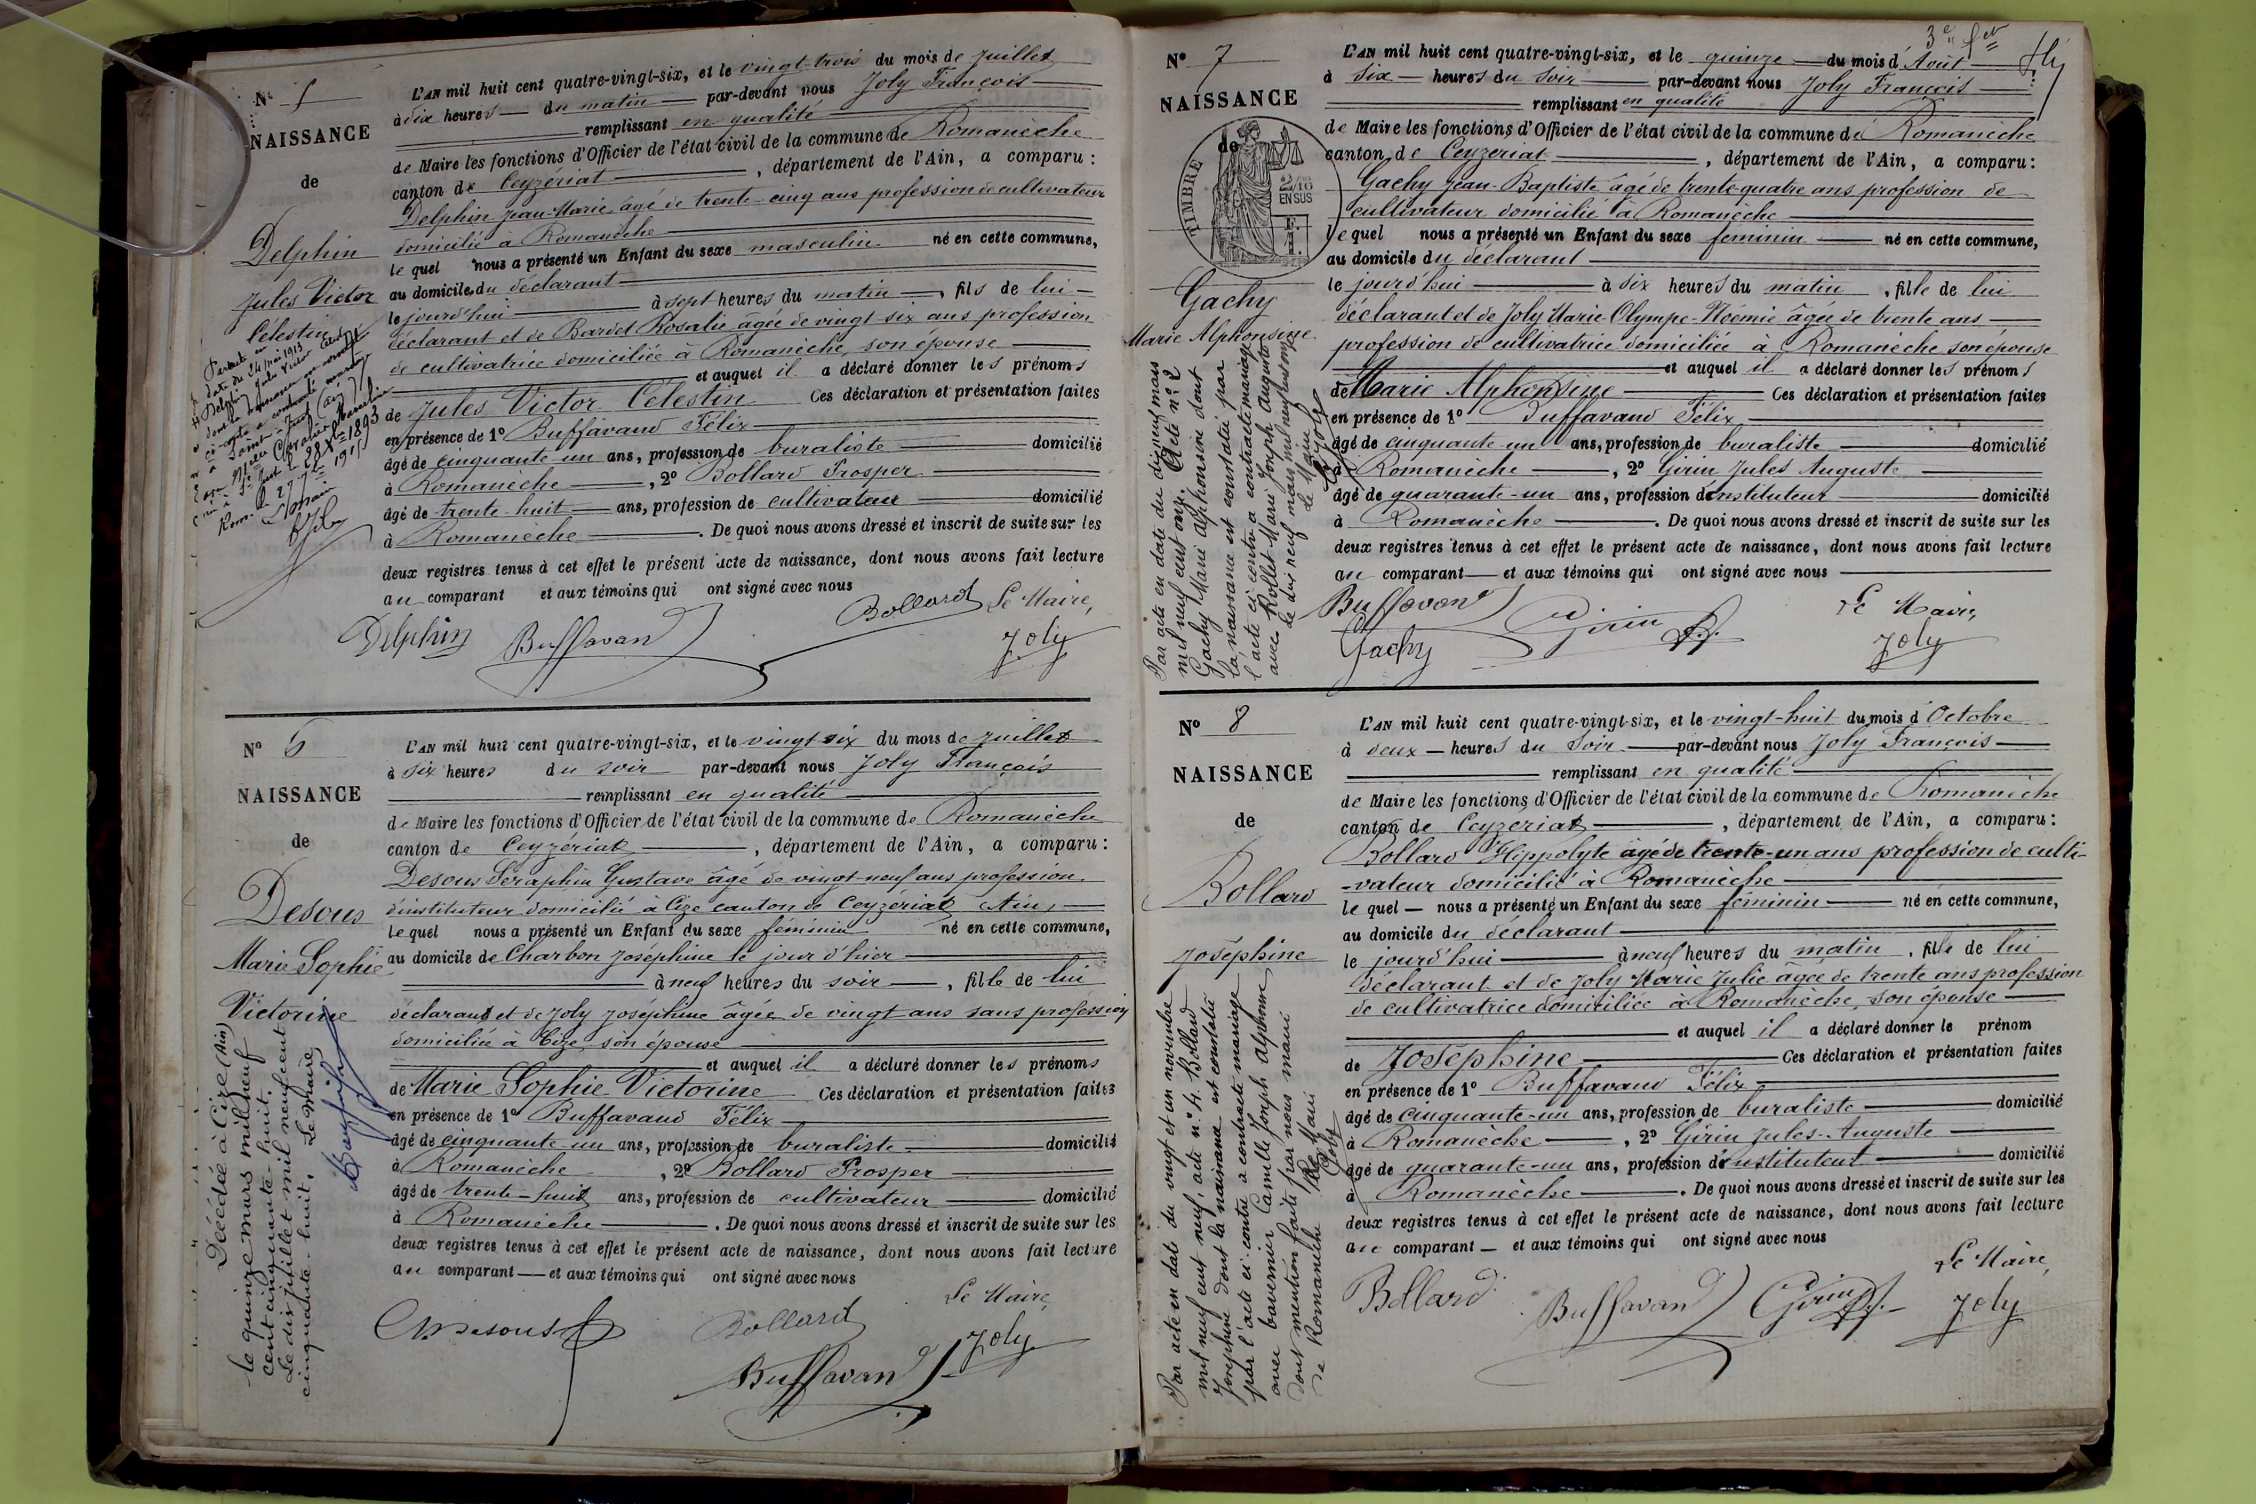 N° 5
NAISSANCE
de
Delphin
Jules Victor
Célestin
L'AN mil huit cent quatre-vingt-six, et le vingt-trois du mois de Juillet
à dix heures du matin par-devant nous Joly François
remplissant en qualité
de Maire les fonctions d'Officier de l'état civil de la commune de Romanèche
canton de Ceyzériat, département de l'Ain, a comparu :
Delphin Jean-Marie, âgé de trente-cinq ans profession de cultivateur
domicilié à Romanèche
lequel nous a présenté un Enfant du sexe masculin né en cette commune,
au domicile du déclarant
le jourd'hui à sept heures du matin, fils de lui
déclarant et de Bardet Rosalie âgée de vingt-six ans profession
de cultivatrice domiciliée à Romanèche, son épouse
et auquel il a déclaré donner les prénoms
de Jules Victor Célestin Ces déclaration et présentation faites
en présence de 1° Buffavand Félix
âgé de cinquante-un ans, profession de buraliste domicilié
à Romanèche, 2° Bollard Prosper
âgé de trente-huit ans, profession de cultivateur domicilié
à Romanèche. De quoi nous avons dressé et inscrit de suite sur les
deux registres tenus à cet effet le présent acte de naissance, dont nous avons fait lecture
au comparant et aux témoins qui ont signé avec nous
Delphin Buffavand Bollard Le Maire,
Joly
N° 6
NAISSANCE
de
Desous
Marie Sophie
Victorine
Décédée à Cize (Ain)
le quinze mars mil neuf
cent cinquante-huit.
Le dix juillet mil neuf cent
cinquante-huit, Le Maire
L'AN mil huit cent quatre-vingt-six, et le vingt-six du mois de Juillet
à six heures du soir par-devant nous Joly François
remplissant en qualité
de Maire les fonctions d'Officier de l'état civil de la commune de Romanèche
canton de Ceyzériat, département de l'Ain, a comparu :
Desous Séraphin Gustave âgé de vingt-neuf ans profession
d'instituteur domicilié à Cize canton de Ceyzériat Ain,
lequel nous a présenté un Enfant du sexe féminin né en cette commune,
au domicile de Charbon Joséphine le jour d'hier
à neuf heures du soir, fille de lui
déclarant et de Joly Joséphine âgée de vingt ans sans profession
domiciliée à Cize, son épouse
et auquel il a déclaré donner les prénoms
de Marie Sophie Victorine Ces déclaration et présentation faites
en présence de 1° Buffavand Félix
âgé de cinquante-un ans, profession de buraliste domicilié
à Romanèche, 2° Bollard Prosper
âgé de trente-huit ans, profession de cultivateur domicilié
à Romanèche. De quoi nous avons dressé et inscrit de suite sur les
deux registres tenus à cet effet le présent acte de naissance, dont nous avons fait lecture
au comparant et aux témoins qui ont signé avec nous
Desous Bollard Le Maire,
Buffavand Joly
3e f
N° 7
NAISSANCE
de
TIMBRE
2/10
EN SUS
Gachy
Marie Alphonsine
Par acte en date du dix neuf mars
mil neuf cent onze. Acte n° 2
Gachy Marie Alphonsine dont
la naissance est constatée par
l'acte ci-contre a contracté mariage
avec Rollet Marie Joseph Auguste
le dix neuf mars mil neuf cent onze
Le Maire
Joly
L'AN mil huit cent quatre-vingt-six, et le quinze du mois d'Août
à six heures du soir par-devant nous Joly François
remplissant en qualité
de Maire les fonctions d'Officier de l'état civil de la commune de Romanèche
canton de Ceyzeriat, département de l'Ain, a comparu :
Gachy Jean-Baptiste âgé de trente-quatre ans profession de
cultivateur domicilié à Romanèche
lequel nous a présenté un Enfant du sexe féminin né en cette commune,
au domicile du déclarant
le jourd'hui à six heures du matin, fille de lui
déclarant et de Joly Marie-Olympe-Noemie âgée de trente ans
profession de cultivatrice domiciliée à Romanèche son épouse
et auquel il a déclaré donner les prénoms
de Marie Alphonsine Ces déclaration et présentation faites
en présence de 1° Buffavand Félix
âgé de cinquante-un ans, profession de buraliste domicilié
à Romanèche, 2° Girin Jules Auguste
âgé de quarante-un ans, profession d'instituteur domicilié
à Romanèche. De quoi nous avons dressé et inscrit de suite sur les
deux registres tenus à cet effet le présent acte de naissance, dont nous avons fait lecture
au comparant et aux témoins qui ont signé avec nous
Buffavand Girin Le Maire,
Gachy Joly
N° 8
NAISSANCE
de
Bollard
Joséphine
Par acte en date du vingt et un novembre
mil neuf cent neuf, acte n° 4. Bollard
Joséphine dont la naissance est constatée
par l'acte ci-contre a contracté mariage
avec Tavernier Camille Joseph Alphonse
dont mention faite par nous maire
de Romanèche Le Maire
Joly
L'AN mil huit cent quatre-vingt-six, et le vingt-huit du mois d'Octobre
à deux heures du soir par-devant nous Joly François
remplissant en qualité
de Maire les fonctions d'Officier de l'état civil de la commune de Romanèche
canton de Ceyzeriat, département de l'Ain, a comparu :
Bollard Hippolyte âgé de trente-un ans profession de culti-
-vateur domicilié à Romanèche
lequel nous a présenté un Enfant du sexe féminin né en cette commune,
au domicile du déclarant
le jourd'hui à neuf heures du matin, fille de lui
déclarant et de Joly Marie Julie âgée de trente ans profession
de cultivatrice domiciliée à Romanèche, son épouse
et auquel il a déclaré donner le prénom
de Joséphine Ces déclaration et présentation faites
en présence de 1° Buffavand Félix
âgé de cinquante-un ans, profession de buraliste domicilié
à Romanèche, 2° Girin Jules-Auguste
âgé de quarante-un ans, profession d'instituteur domicilié
à Romanèche. De quoi nous avons dressé et inscrit de suite sur les
deux registres tenus à cet effet le présent acte de naissance, dont nous avons fait lecture
au comparant et aux témoins qui ont signé avec nous
Le Maire,
Bollard Buffavand Girin Joly